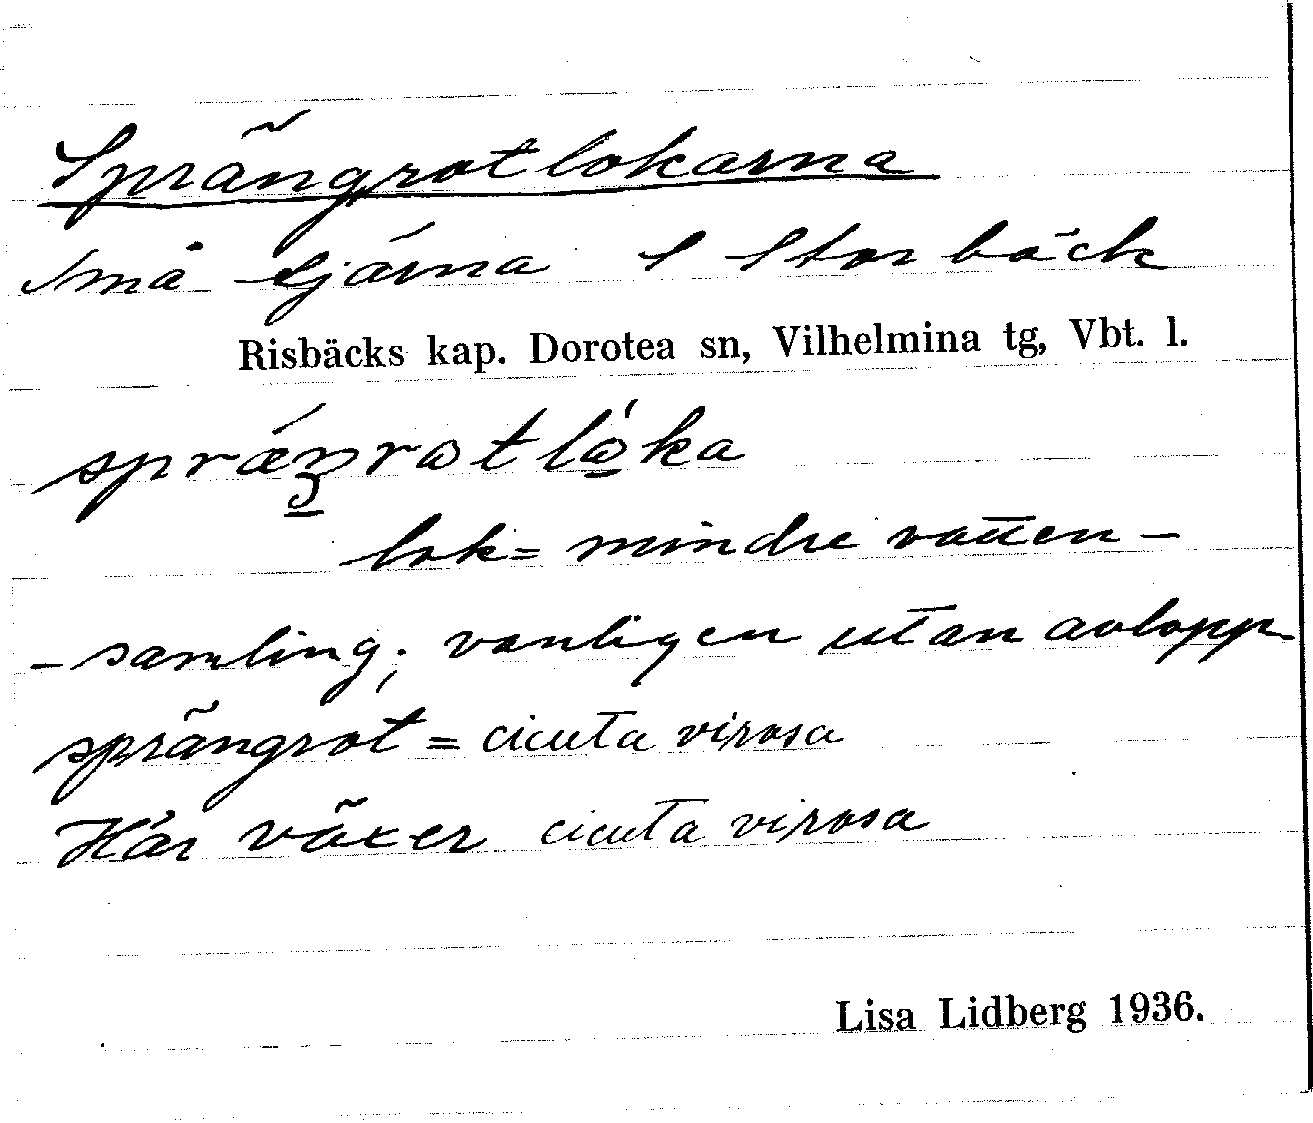 Sprängrotlokarna
Små tjärna S Storbäck
Risbäcks kap. Dorotea sn, Vilhelmina tg, Vbt. l.
lok = mindre vatten-
-samling; vanligen utan avlopp
sprängrot = cicuta virosa
Här växer cicuta virosa
Lisa Lidberg 1936.